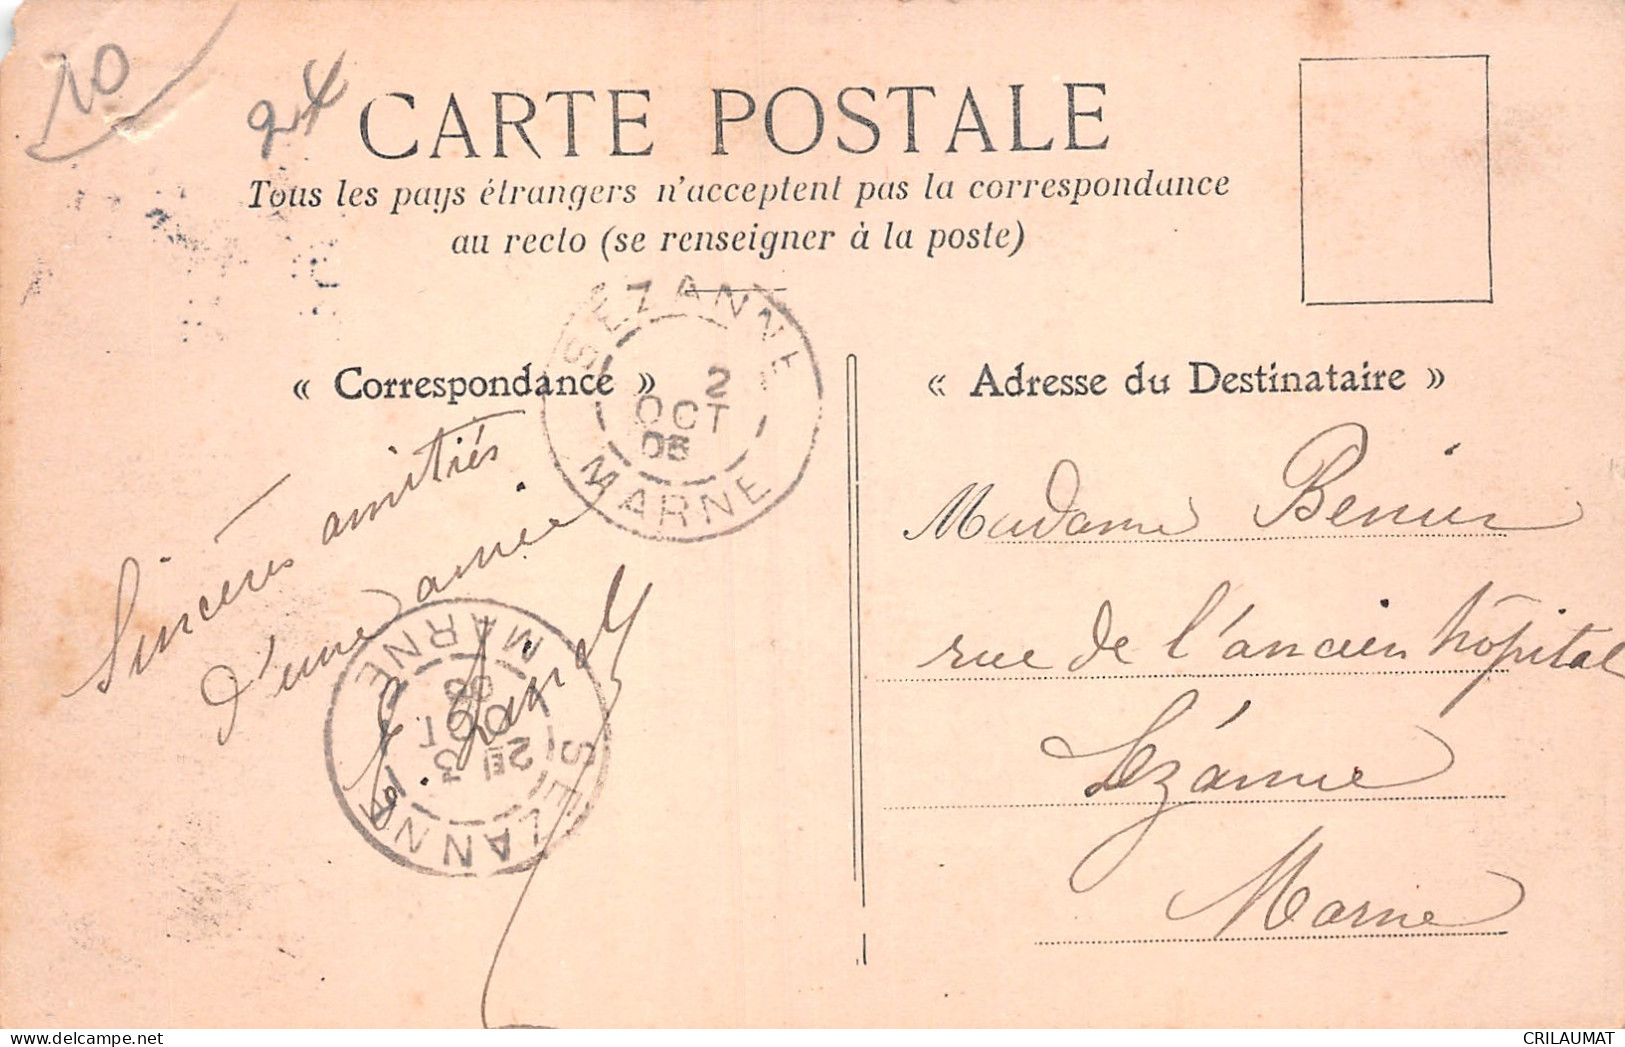 10
24
CARTE POSTALE
Tous les pays étrangers n'acceptent pas la correspondance
au recto (se renseigner à la poste)
« Correspondance »
Sincères amitiés
d'une amie
SEZANNE
2
OCT
05
MARNE
SEZANNE
2E
3
OCT
MARNE
« Adresse du Destinataire »
Madame
rue de l'ancien hôpital
Sézanne
Marne
CRILAUMAT